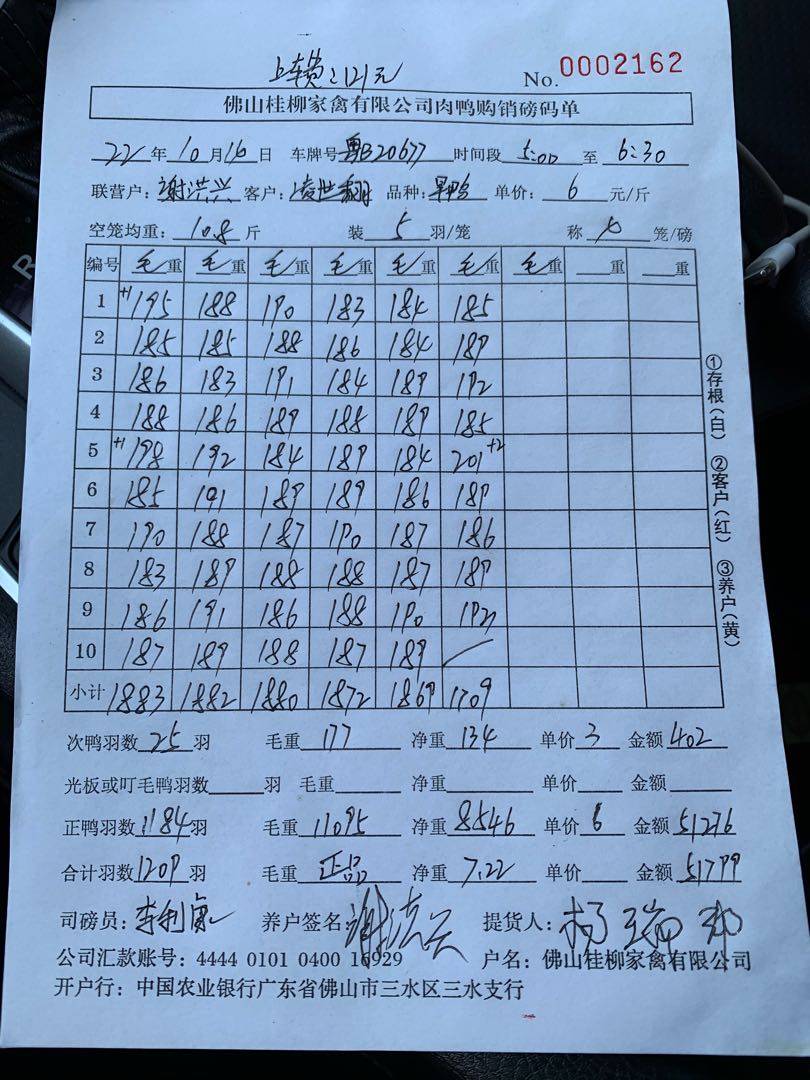 上车费:121元 No. 0002162
佛山桂柳家禽有限公司肉鸭购销磅码单
22年10月16日 车牌号粤B20677 时间段5:00至6:30
联营户:谢洪兴 客户:凌世翻 品种:旱鸭 单价:6元/斤
空笼均重:10.8斤 装5羽/笼 称4笼/磅
编号 毛重 毛重 毛重 毛重 毛重 毛重 毛重 重 重
1 +1195 188 190 183 184 185
2 185 185 188 186 184 189
3 186 183 191 184 189 192
4 188 186 189 188 189 185
5 +1198 192 184 189 184 201+2
6 185 191 189 189 186 189
7 190 188 187 190 187 186
8 183 189 188 188 187 189
9 186 191 186 188 190 192
10 187 189 188 187 189
小计 1883 1882 1880 1872 1869 1709
次鸭羽数25羽 毛重177 净重134 单价3 金额402
光板或叮毛鸭羽数 羽 毛重 净重 单价 金额
正鸭羽数1184羽 毛重11095 净重8546 单价6 金额51276
合计羽数1209羽 毛重正品 净重7.22 单价 金额51799
司磅员:李利 养户签名:谢洪兴 提货人:杨瑞邦
公司汇款账号:4444 0101 0400 16929 户名:佛山桂柳家禽有限公司
开户行:中国农业银行广东省佛山市三水区三水支行
①存根(白) ②客户(红) ③养户(黄)